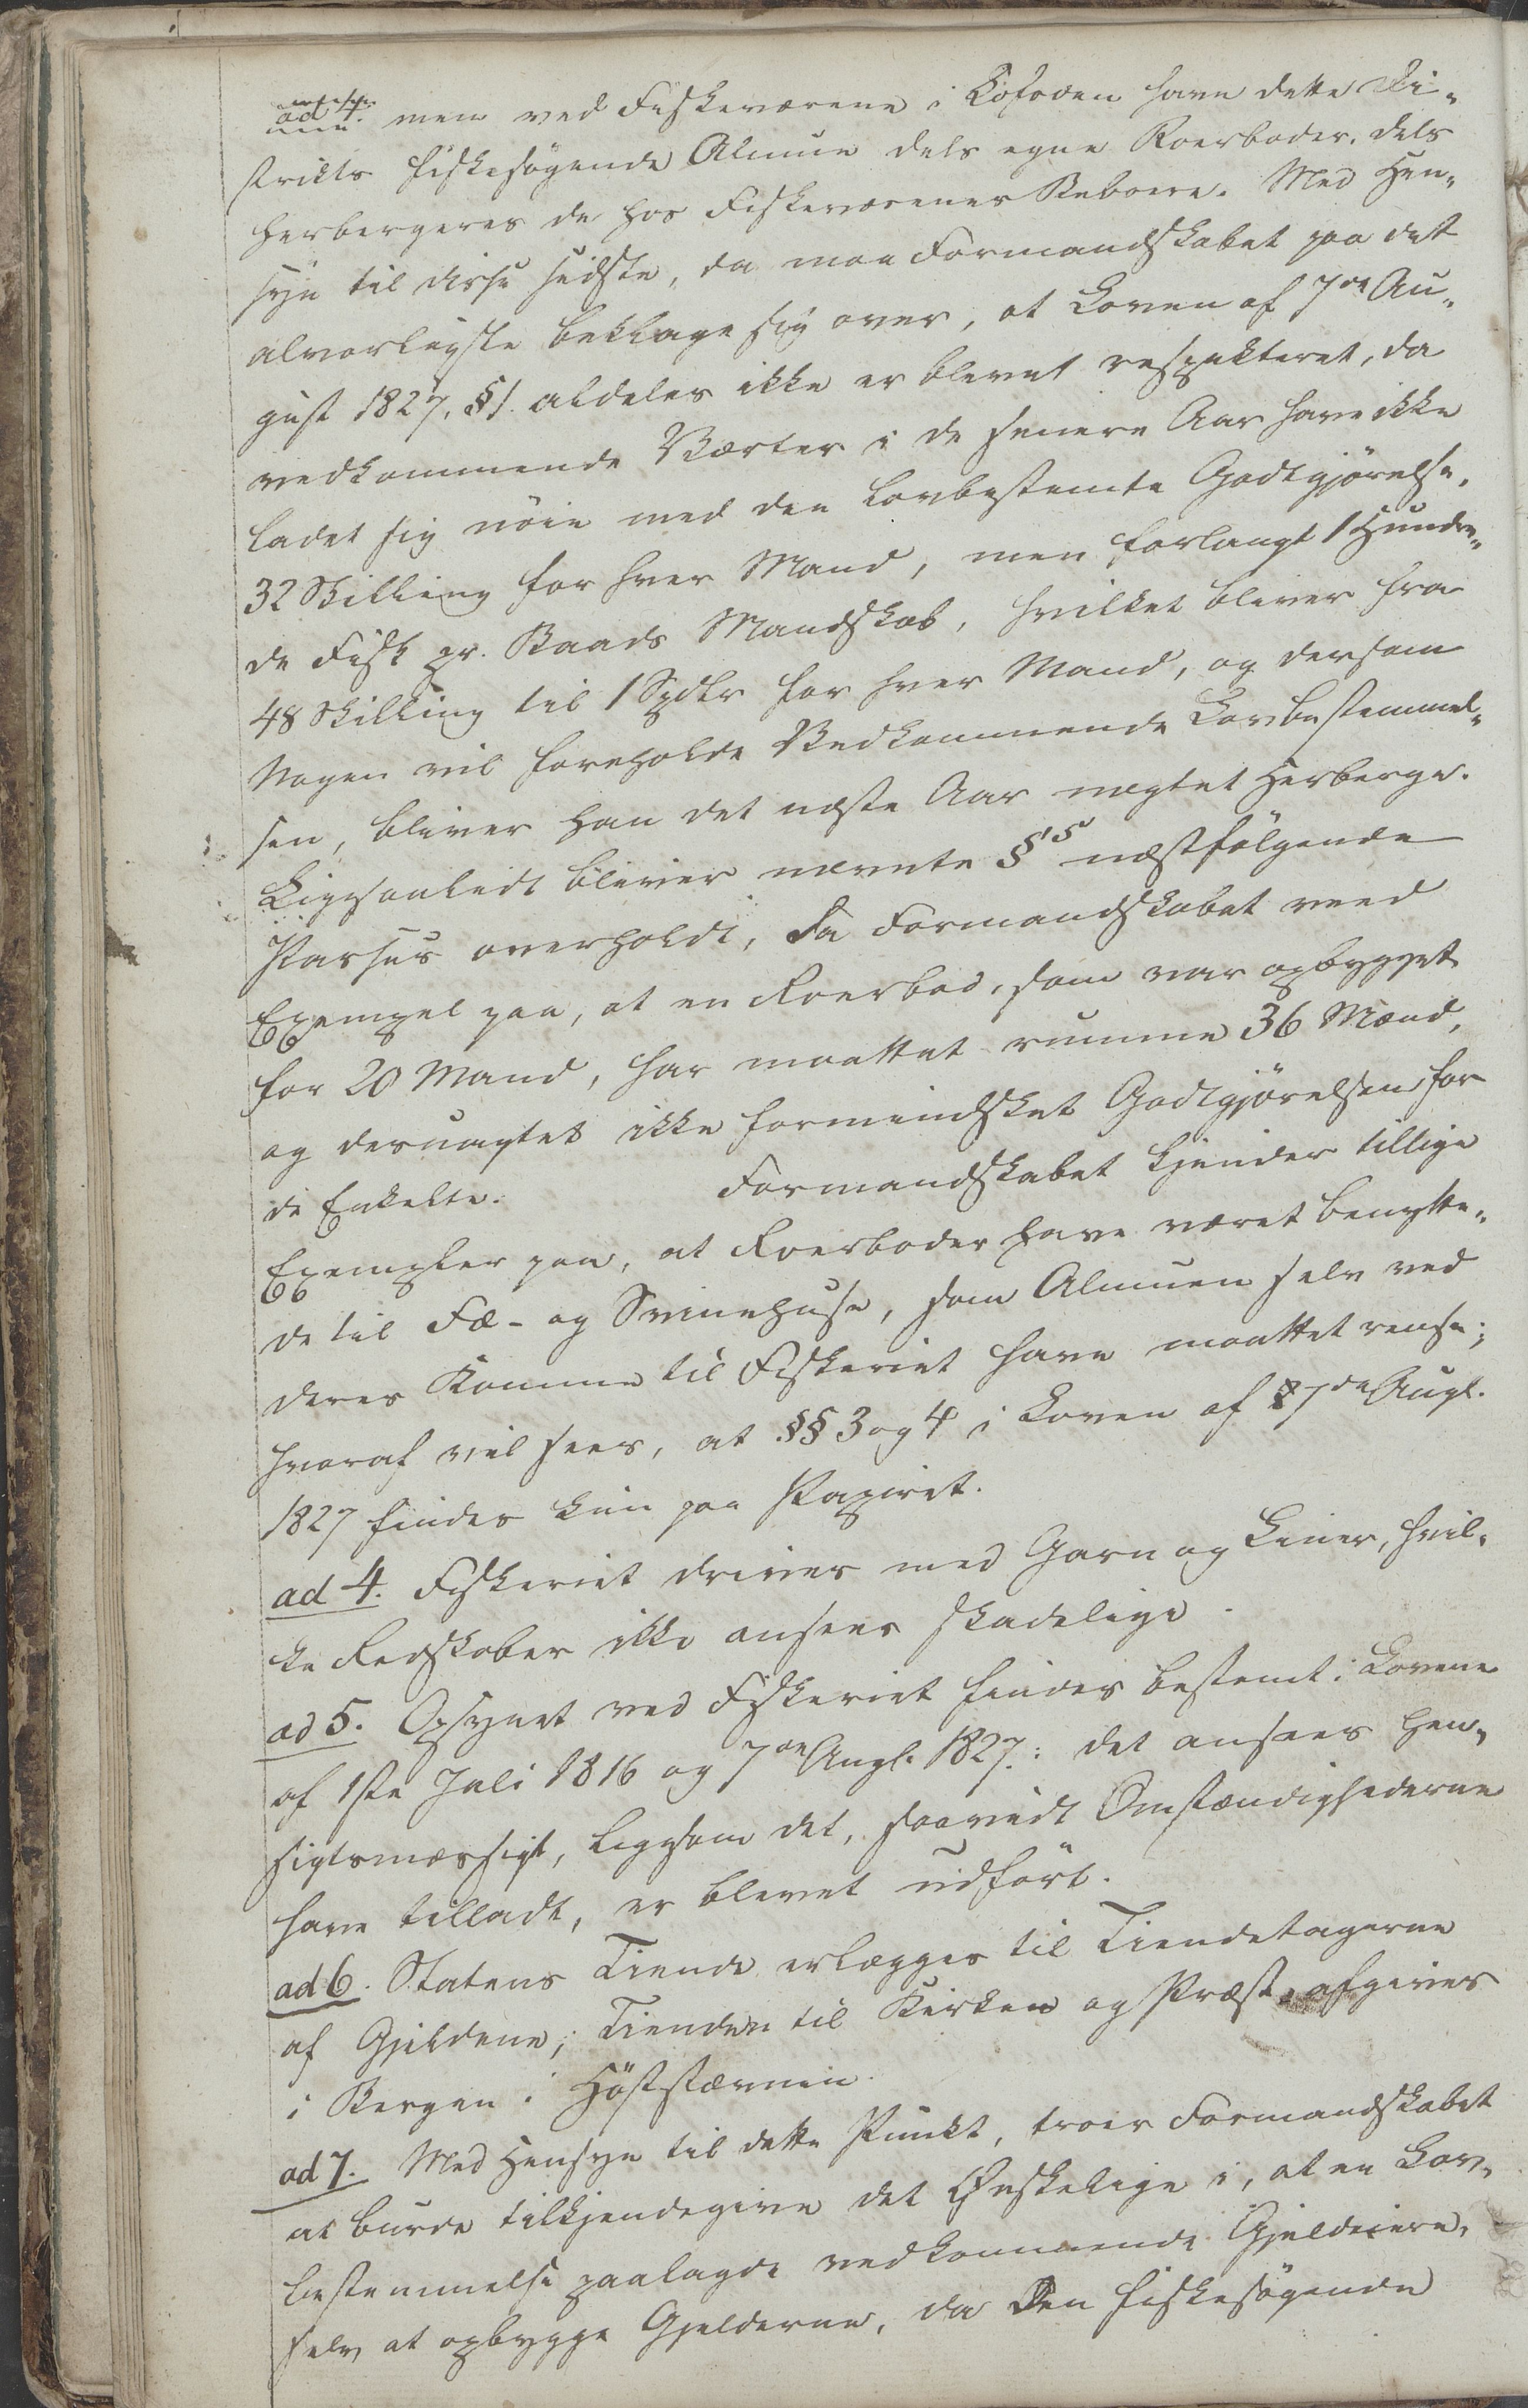 ad 4. men ved Fiskeværene i Lofoden have dette Di-
strikts fiskesøgende Almue dels egne Roerboder, dels
herbergeres de hos Fiskeværenes Beboere. Med Hen-
syn til disse sidste, da maa Formandskabet paa det
alvorligste beklage sig over, at Loven af 7de Au-
gust 1827, §1. aldeles ikke er blevet respekteret, da
vedkommende Værter i de senere Aar have ikke
ladet sig nöie med den lovbestemte Godtgjörelse,
32 Skilling for hver Mand, men forlangt 1 Hundre-
de Fisk pr. Baads Mandskab, hvilket bliver fra
48 Skilling til 1 Spdlr for hver Mand, og dersom
Nogen vil foreholde Vedkommende Lovbestemmel-
sen, bliver han det næste Aar nægtet Herberge.
Ligesaalidt bliver nævnte §'s næstfölgende
Passus overholdt, da Formandskabet veed
Exempel paa, at en Roerbod, som var opbygget
for 20 Mand, har maattet rumme 36 Mand,
og desuagtet ikke formindsket Godtgjörelsen for
de Enkelte. Formandskabet kjender tillige
Exempler paa, at Roerboder have været benytte-
de til Fæ- og Svinehuse, som Almuen selv ved
deres Komme til Fiskeriet have maattet rense;
hvoraf vil sees, at §§ 3 og 4 i Loven af 7de Augt.
1827 findes kun paa Papiret.
ad 4. Fiskeriet drives med Garn og Liner, hvil-
ke Redskaber ikke ansees skadelige.
ad 5. Opsynet ved Fiskeriet findes bestemt i Lovene
af 1ste Juli 1816 og 7de Augt. 1827: det ansees hen-
sigtsmæssigt, ligesom det, saavidt Omstændighederne
have tilladt, er blevet udfört.
ad 6. Statens Tiende erlægges til Tiendetagerne
af Gjeldene; Tienden til Kirken og Præst afgives
i Bergen i Höststævnen.
ad 7. Med Hensyn til dette Punkt, troer Formandskabet
at burde tilkjendegive det Ønskelige i, at en Lov-
bestemmelse paalagde vedkommende Gjeldeiere,
selv at opbygge Gjelderne, da den fiskesøgende